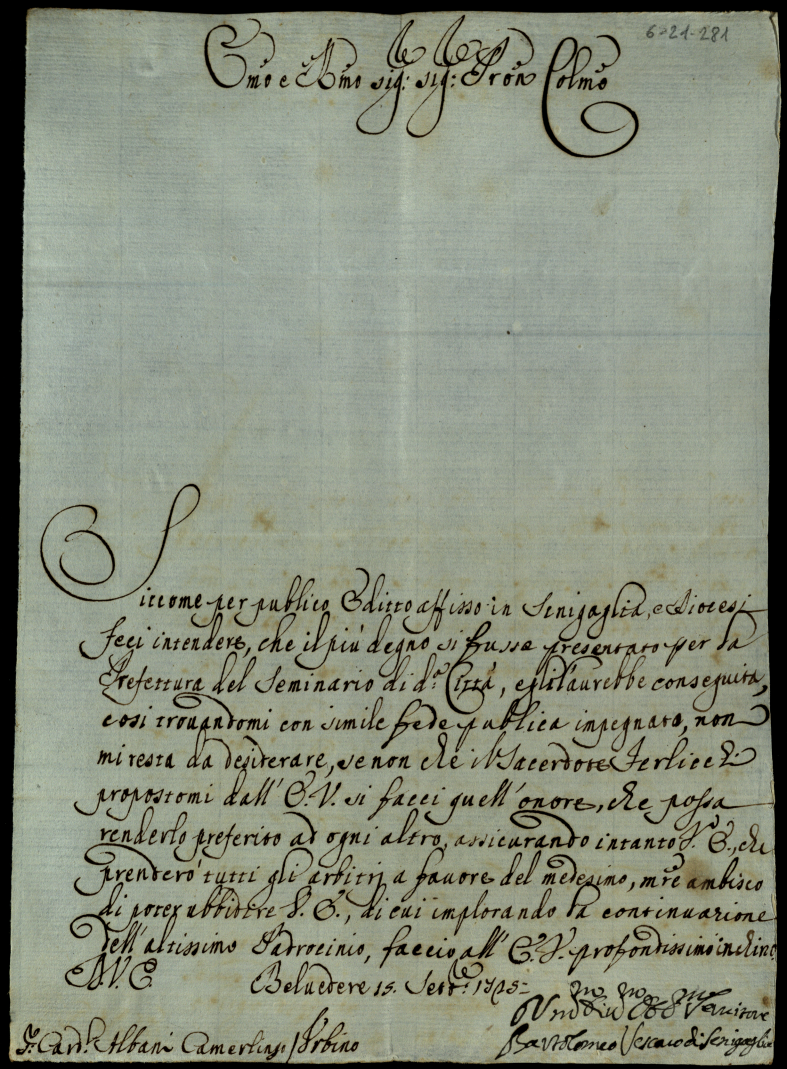 6-21-281
Emo e Rmo sig: sig: Pron Colmo
Siccome per publico Editto affisso in Senigaglia, e Diocesi
feci intendere, che il più degno si fusse presentato per la
Prefettura del Seminario di d.ª Città, egli l'aurebbe conseguita,
cosi trouandomi con simile fede publica impegnato, non
mi resta da desiderare, se non che il Sacerdote
propostomi dall' E.V. si facci quell'onore, che possa
renderlo preferito ad ogni altro, assicurando intanto V. E., che
prenderò tutti gli arbitrij a fauore del medesimo, mre ambisco
di poter ubbidire V. E., di cui implorando la continuazione
dell'altissimo Padrocinio, faccio all' E.V. profondissimo inchino
D.V.E. Beluedere 15. Settre 1725=
Seruitore
Bartolomeo Vescouo di Senigaglia
Sr. Card.l Albani Camerlingo / Vrbino